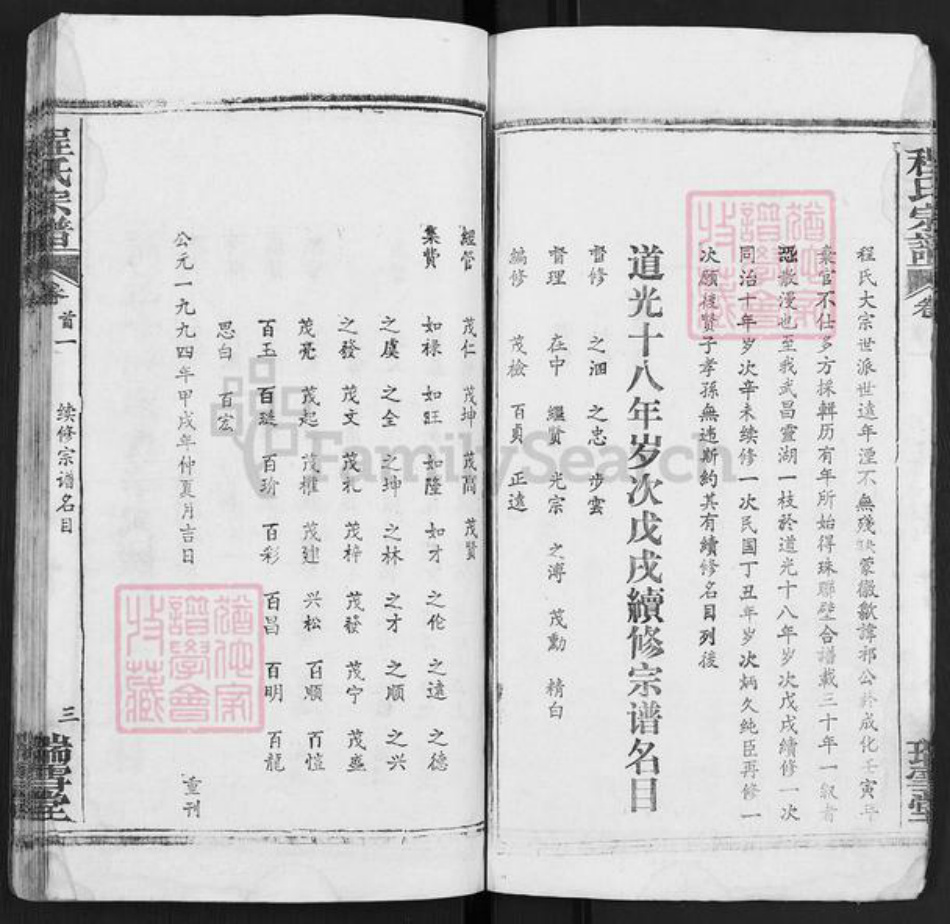 程氏大宗世派世遠年湮不無殘缺蒙徽歙諱祁公於成化壬寅年
棄官不仕多方採輯历有年所始得珠聯壁合譜載三十年一叙者
恐散漫也至我武昌靈湖一枝於道光十八年岁次戊戌續修一次
同治十年岁次辛未续修一次民国丁丑年岁次炳久纯臣再修一
次願後賢子孝孫無违斯約其有續修名目列後
道光十八年岁次戊戌續修宗谱名目
督修 之泗 之忠 步雲
督理 在中 繼賢 光宗 之溥 茂勳 精白
編修 茂檢 百貞 正遠
經管 茂仁 茂坤 茂高 茂賢
集費 如禄 如旺 如隆 如才 之伦 之遠 之德
之虞 之全 之坤 之林 之才 之順 之兴
之發 茂文 茂礼 茂梓 茂發 茂宁 茂盛
茂亮 茂起 茂權 茂建 兴松 百順 百愷
百玉 百琏 百瑜 百彩 百昌 百明 百龍
思白 百宏
公元一九九四年甲戌年仲夏月吉日 重刊
程氏宗譜 卷首一 续修宗谱名目 三 瑞雪堂
程氏宗譜 卷 瑞雪堂
猶他家譜學會收藏
猶他家譜學會收藏
FamilySearch